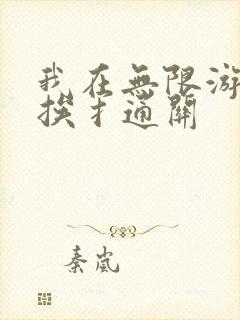 我在無限游
挨扌通關
秦嵐